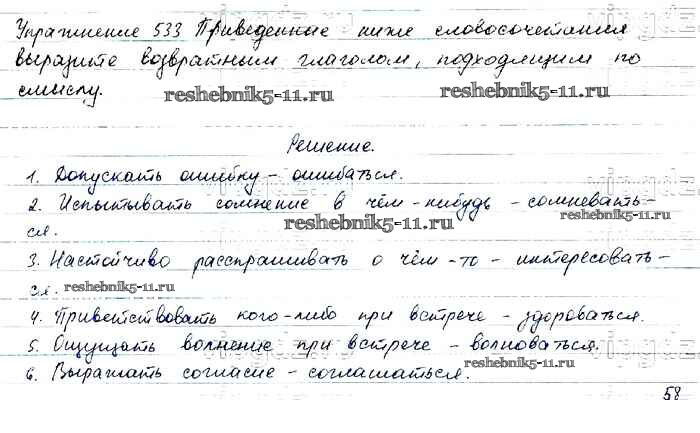 Упражнение 533 Приведенные ниже словосочетания
выразите возвратным глаголом, подходящим по
смыслу.
reshebnik5-11.ru
reshebnik5-11.ru
Решение.
1. Допускать ошибку - ошибаться.
2. Испытывать сомнение в чём-нибудь - сомневать-
reshebnik5-11.ru
reshebnik5-11.ru
ся.
3. Настойчиво расспрашивать о чём-то - интересовать-
ся.
reshebnik5-11.ru
4. Приветствовать кого-либо при встрече - здороваться.
5. Ощущать волнение при встрече - волноваться.
reshebnik5-11.ru
6. Выражать согласие - соглашаться.
58